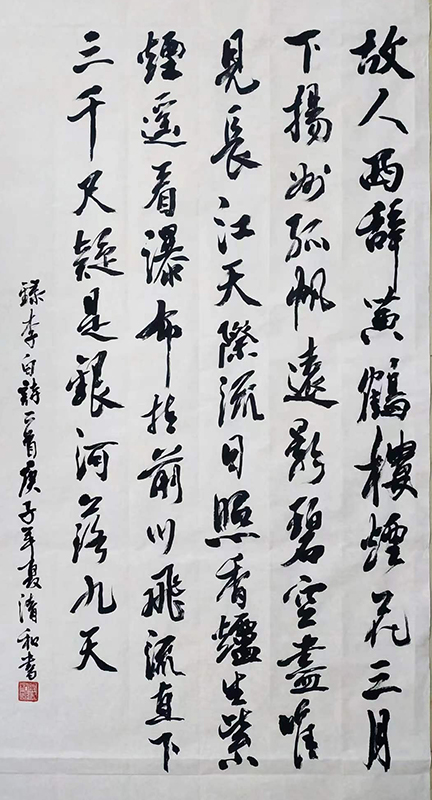 故人西辞黄鶴樓煙花三月
下揚州孤帆遠影碧空盡唯
見長江天際流日照香爐生紫
煙遥看瀑布挂前川飛流直下
三千尺疑是銀河落九天
録李白詩二首庚子年夏清和書